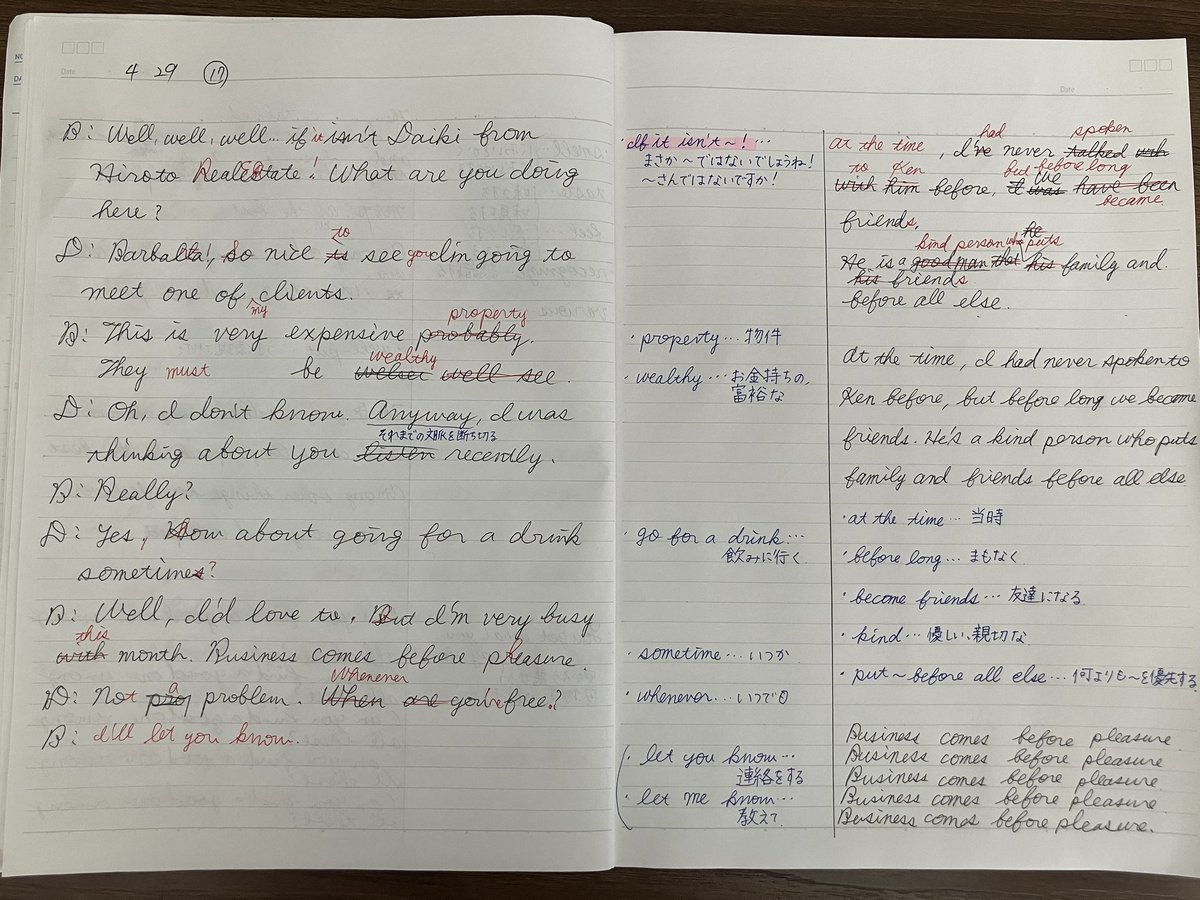 Date 4 29 ⑰
B: Well, well, well... if it isn't Daiki from
Hiroto Real Estate! What are you doing
here?
to
D: Barbara! So nice to see you. I'm going to
meet one of clients.
my
property
B: This is very expensive probably.
wealthy
They must be well see.
D: Oh, I don't know. Anyway, I was
それまでの文脈を断ち切る
thinking about you listen recently.
B: Really?
D: Yes, How about going for a drink
sometimes?
B: Well, I'd love to, But I'm very busy
this
with month. Business comes before pleasure.
whenever
D: Not a pro problem. When are you're free?
B: I'll let you know.
・If it isn't ~! …
まさか~ではないでしょうね!
~さんではないですか!
・property … 物件
・wealthy … お金持ちの,
富裕な
・go for a drink …
飲みに行く
・sometime … いつか
・whenever … いつでも
・let you know …
連絡をする
・let me know …
教えて
Date
had spoken
at the time, I've never talked with
to Ken but before long
we
with him before, it was have been
became
friends.
he
kind person who puts
He is a good man that his family and
his friends
before all else.
At the time, I had never spoken to
Ken before, but before long we become
friends. He's a kind person who puts
family and friends before all else
・at the time … 当時
・before long … まもなく
・become friends … 友達になる
・kind … 優しい、親切な
・put ~ before all else … 何よりも~を優先する
Business comes before pleasure
Business comes before pleasure
Business comes before pleasure
Business comes before pleasure.
Business comes before pleasure.